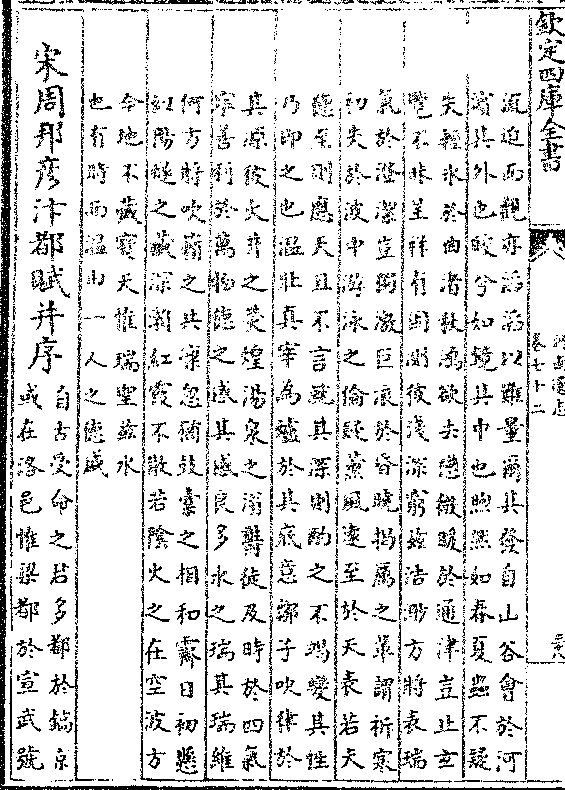 欽定四庫全書
河南通志
卷七十二
流迫而觀亦滔滔以難量爾其發自山谷會於河
濱其外也皎兮如鏡其中也煦然如春夏蟲不疑
失輕氷於曲渚秋鴻欲去戀微暖於通津豈止玄
覽不昧呈祥有開測彼淺深窮玆浩渺方將表瑞
氣於澄潔豈獨激巨浪於昏曉揭厲之輩謂祈寒
初失於波中游泳之倫疑薰風遽至於天表若夫
德至則應天且不言就其深則酌之不竭變其性
乃即之也溫壯真宰為爐於其底意鄒子吹律於
其源彼火井之熒煌湯泉之沸鬱徒及時於四氣
寧善利於萬物德之感其感良多水之瑞其瑞維
何方時吹籟之共寥忽猶鼓橐之相和霽日初懸
似陽燧之藏深潮紅霞不散若陰火之在空波方
今地不藏寶天惟瑞聖玆水
也有時而溫由一人之德盛
宋周邦彦汴都賦并序
自古受命之君多都於鎬京
或在洛邑惟梁都於宣武號